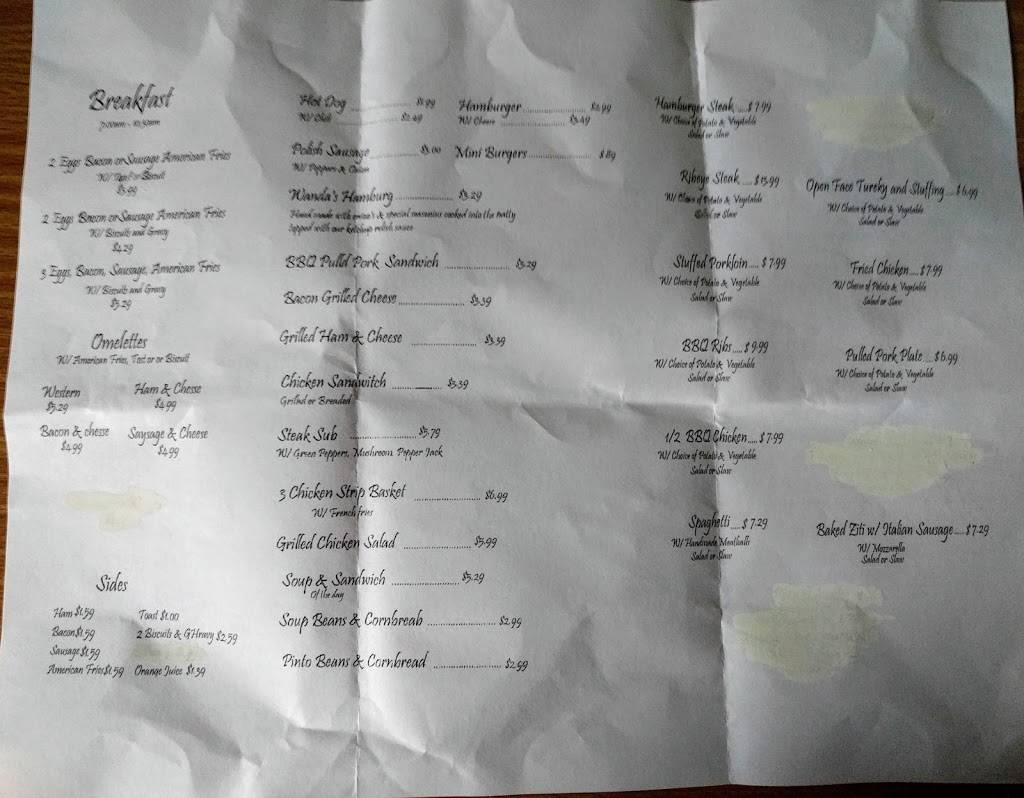 Breakfast
7:00am - 10:30am
2 Eggs Bacon or Sausage American Fries
W/ Toast or Biscuit
$3.99
2 Eggs Bacon or Sausage American Fries
W/ Biscuits and Gravy
$4.29
3 Eggs, Bacon, Sausage, American Fries
W/ Biscuits and Gravy
$5.29
Omelettes
W/ American Fries, Tost or or Biscuit
Western
$5.29
Ham & Chesse
$4.99
Bacon & chesse
$4.99
Saysage & Cheese
$4.99
Sides
Ham $1.59
Bacon $1.59
Sausage $1.59
American Fries $1.59
Toast $1.00
2 Biscuits & GHravy $2.59
Orange Juice $1.39
Hot Dog ........ $1.99
W/ Chili ........ $2.49
Polish Sausage ........ $3.00
W/ Peppers & Onion
Wanda's Hamburg ........ $3.29
Hand made with onion's & special seasonins cooked into the patty
topped with our ketchup relish sauce
BBQ Pulld Pork Sandwich ........ $5.29
Bacon Grilled Cheese ........ $3.39
Grilled Ham & Cheese ........ $3.39
Chicken Sandwitch ........ $5.39
Grilled or Breaded
Steak Sub ........ $5.79
W/ Green Peppers, Mushroom, Pepper Jack
3 Chicken Strip Basket ........ $6.99
W/ French fries
Grilled Chicken Salad ........ $5.99
Soup & Sandwich ........ $5.29
Of the day
Soup Beans & Cornbreab ........ $2.99
Pinto Beans & Cornbread ........ $2.99
Hamburger ........ $2.99
W/ Cheese ........ $3.49
Mini Burgers ........ $ 89
Hamburger Steak .... $ 7.99
W/ Choice of Potato & Vegetable
Salad or Slaw
Ribeye Steak .... $ 13.99
W/ Choice of Potato & Vegetable
Salad or Slaw
Stuffed Porkloin .... $ 7.99
W/ Choice of Potato & Vegetable
Salad or Slaw
BBQ Ribs .... $ 9.99
W/ Choice of Potato & Vegetable
Salad or Slaw
1/2 BBQ Chicken .... $ 7.99
W/ Choice of Potato & Vegetable
Salad or Slaw
Spaghetti .... $ 7.29
W/ Handmade Meatballs
Salad or Slaw
Open Face Tureky and Stuffing .... $ 6.99
W/ Choice of Potato & Vegetable
Salad or Slaw
Fried Chicken .... $ 7.99
W/ Choice of Potato & Vegetable
Salad or Slaw
Pulled Pork Plate .... $ 6.99
W/ Choice of Potato & Vegetable
Salad or Slaw
Baked Ziti w/ Italian Sausage .... $ 7.29
W/ Mozzarella
Salad or Slaw